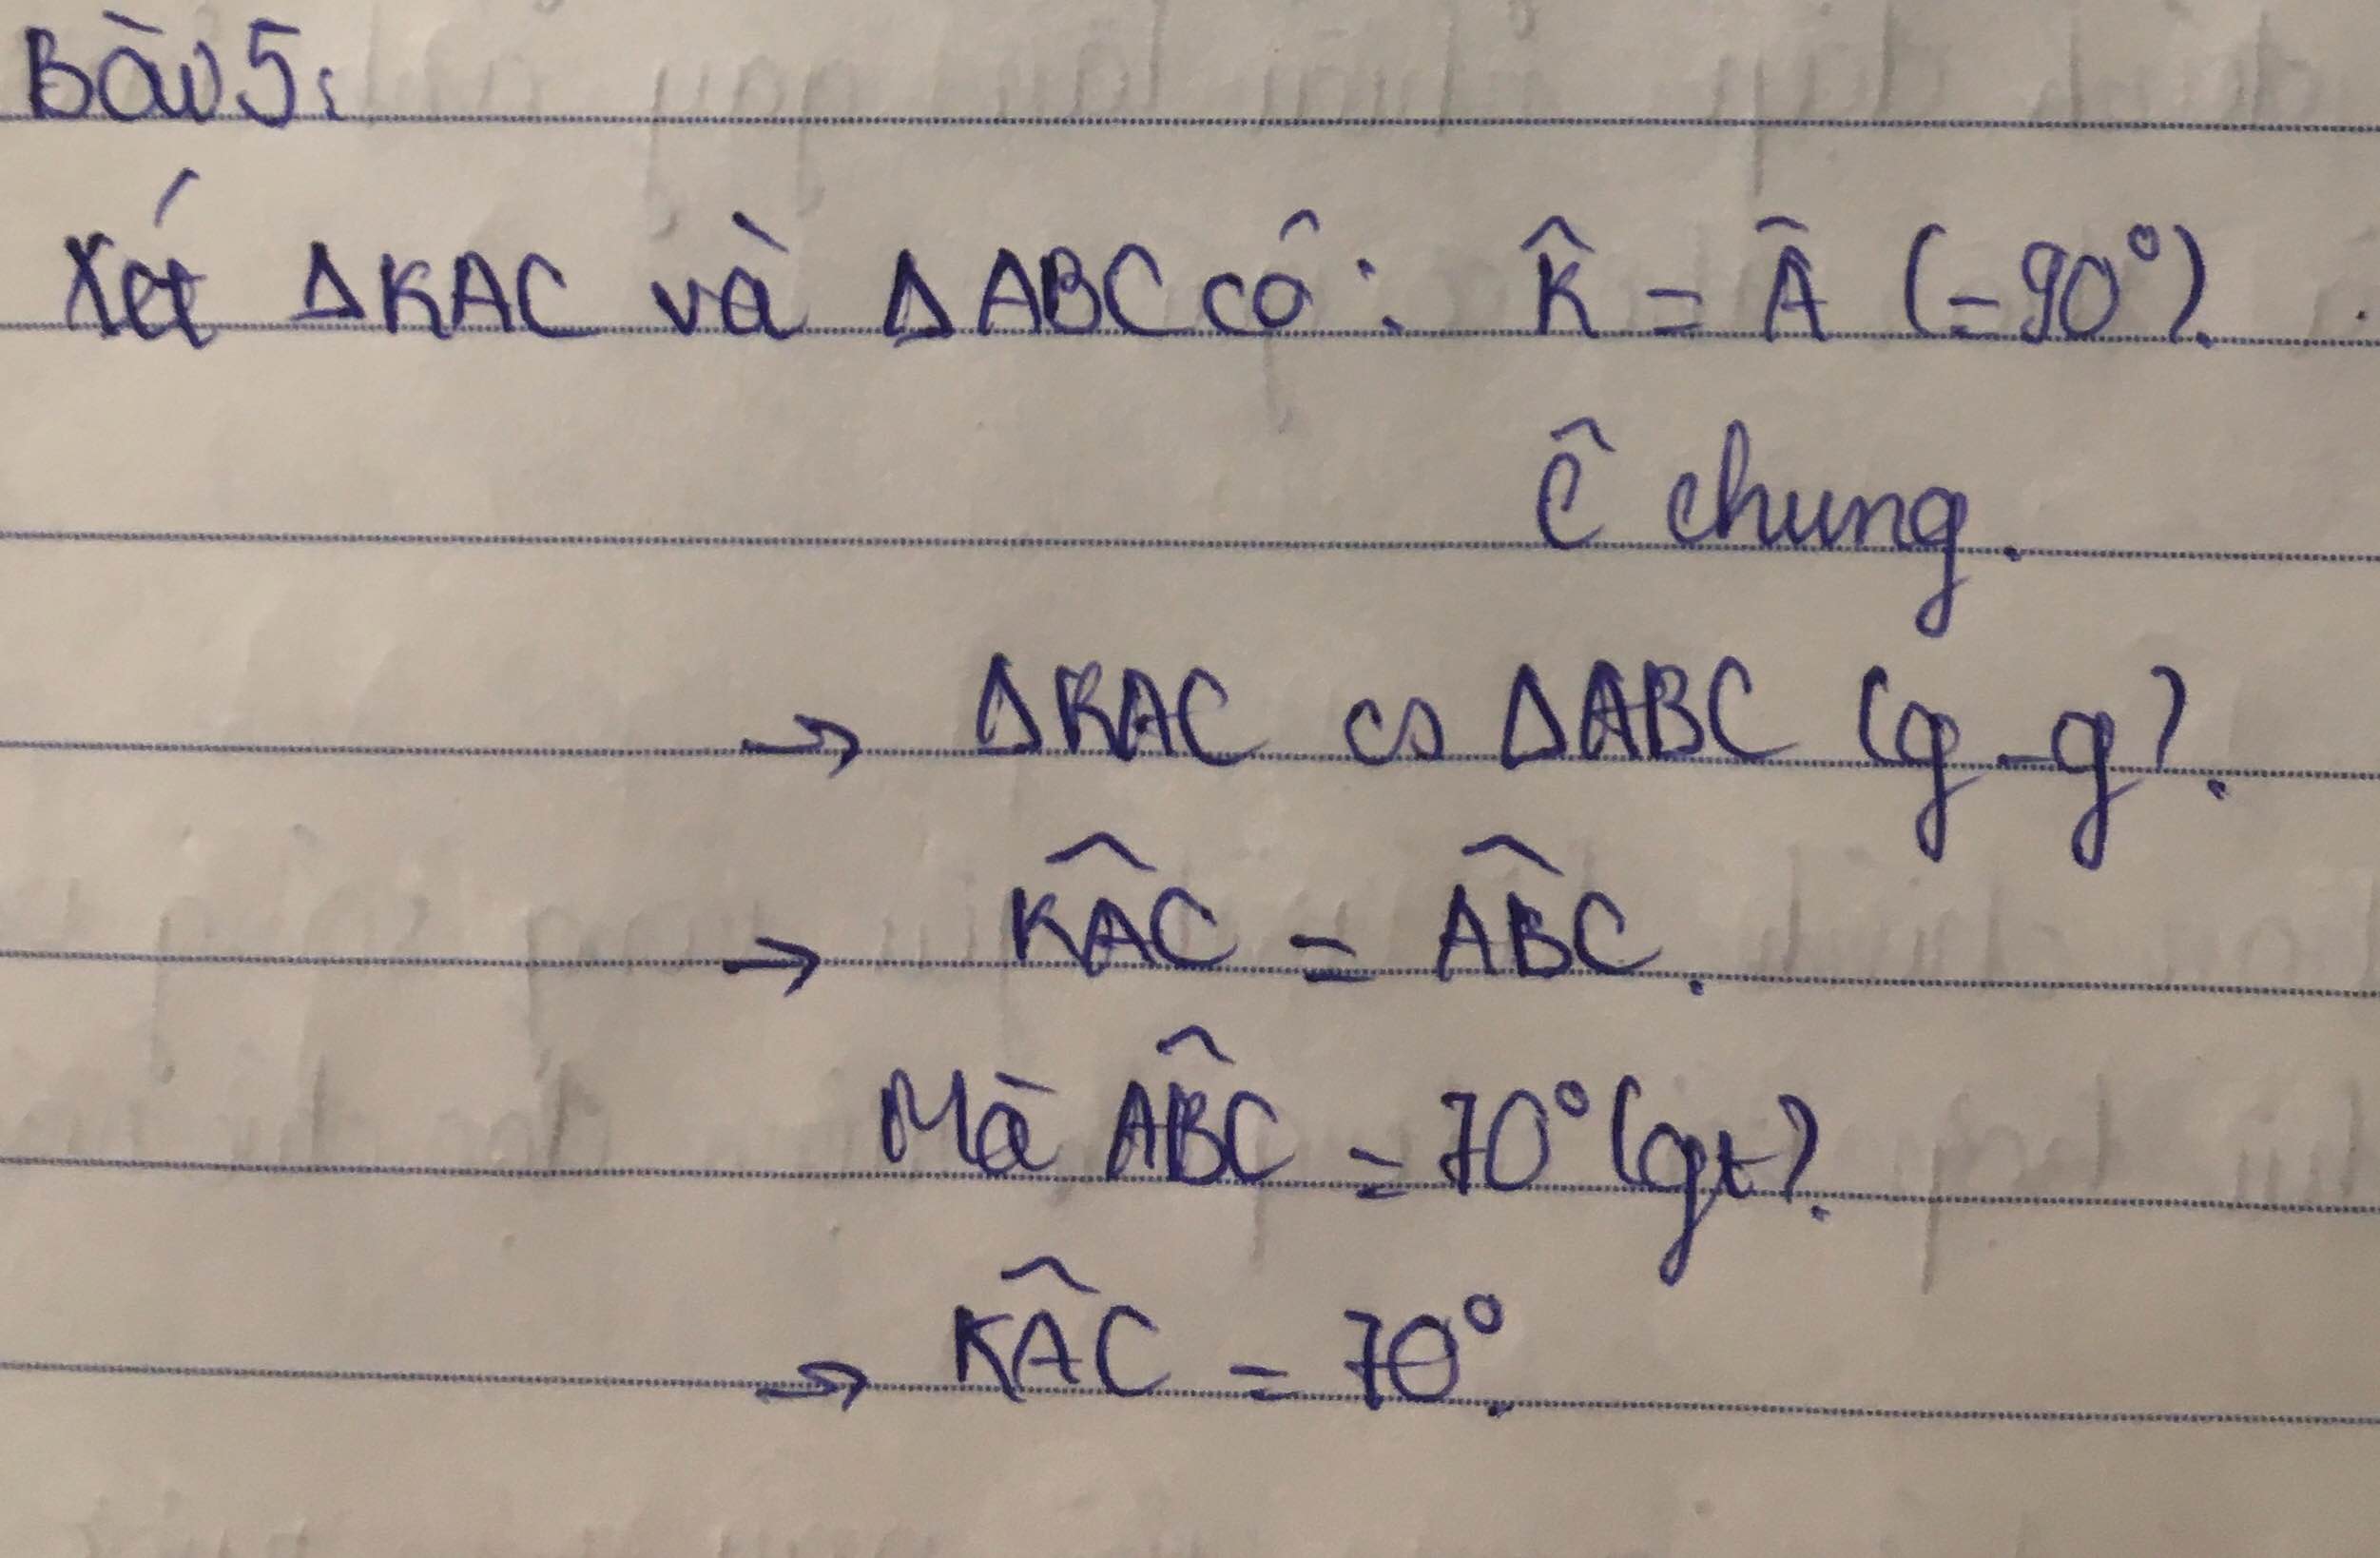 Bài 5:
Xét ΔKAC và ΔABC có: K̂ = Â (=90°).
Ĉ chung.
→ ΔKAC ∽ ΔABC (g-g).
→ K̂AC = ÂBC.
Mà ÂBC = 70° (gt).
→ K̂AC = 70°.